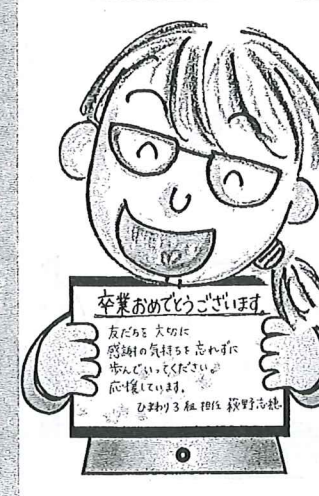 卒業おめでとうございます。
友だちを 大切に
感謝の気持ちを 忘れずに
歩んでいってください。
応援しています。
ひまわり3組 担任 萩野志穂